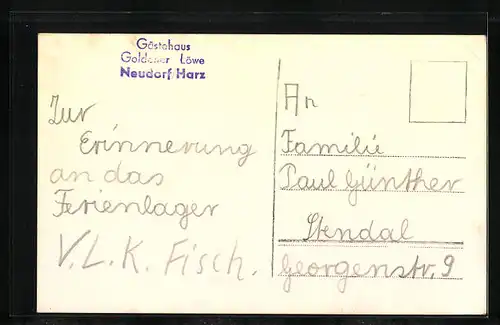 Gästehaus
Goldener Löwe
Neudorf Harz
Zur
Erinnerung
an das
Ferienlager
V.L.K. Fisch.
An
Familie
Paul Günther
Stendal
Georgenstr. 9